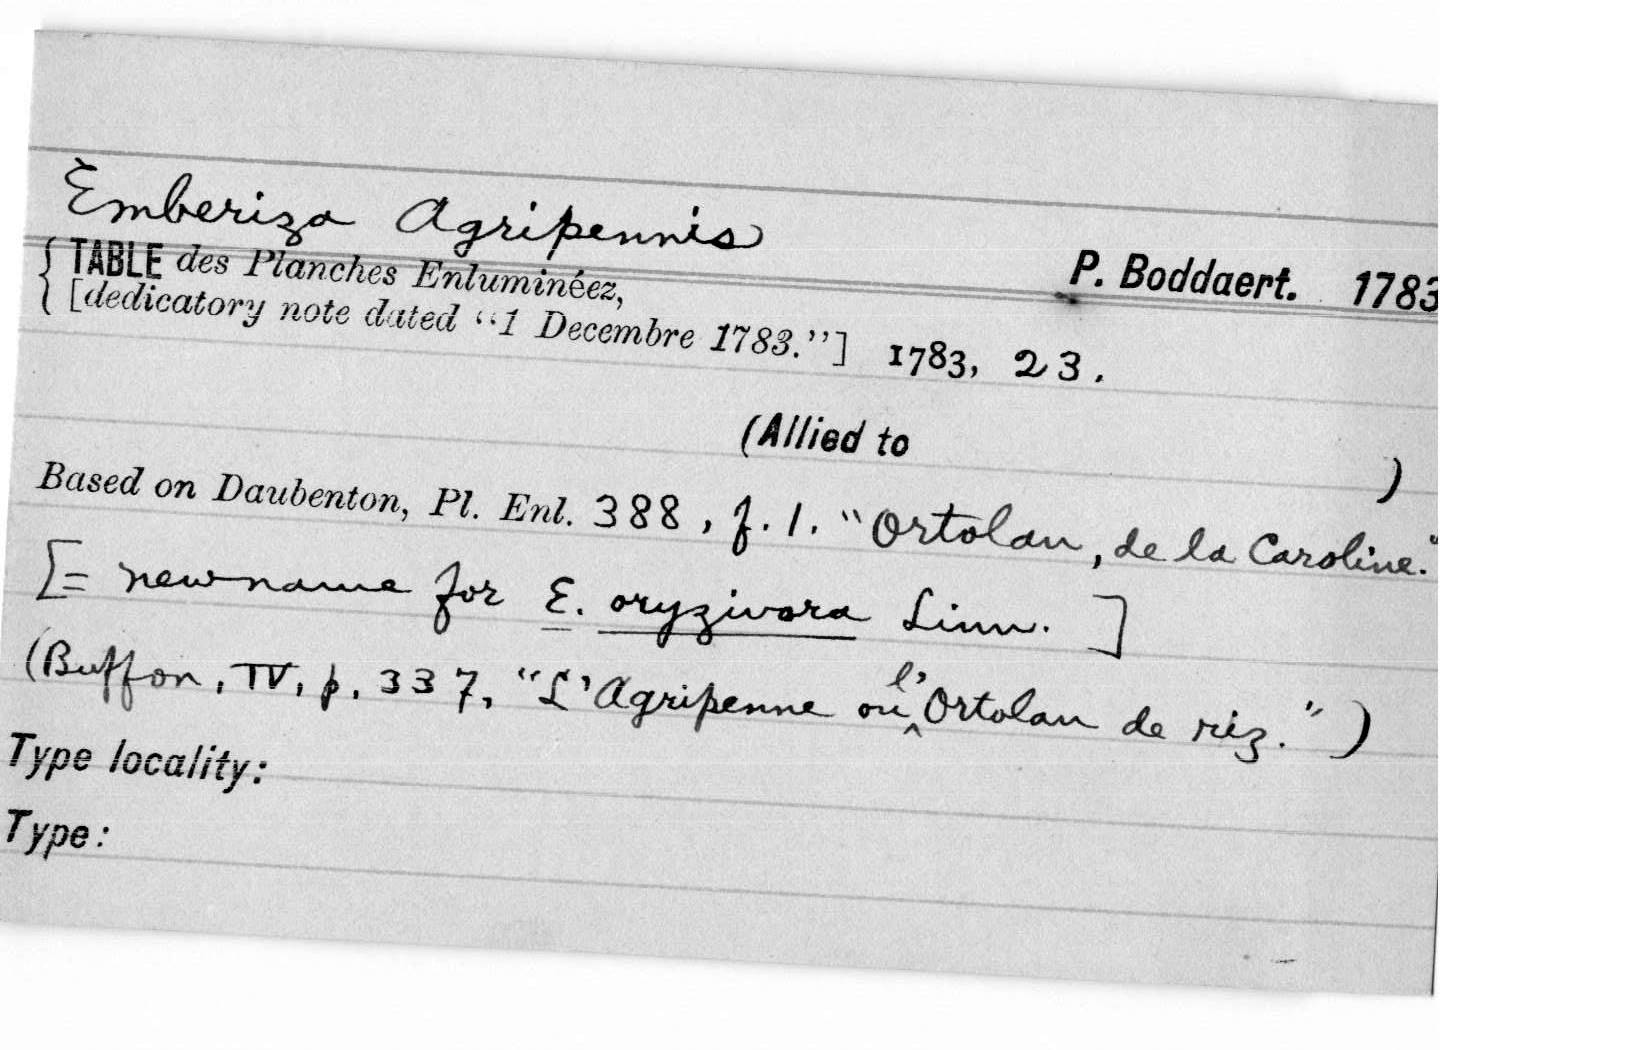 Emberiza Agripennis
P. Boddaert. 1783
{ TABLE des Planches Enluminéez,
{ [dedicatory note dated "1 Decembre 1783."] 1783, 23.
(Allied to )
Based on Daubenton, Pl. Enl. 388, f. 1. "Ortolan, de la Caroline."
[= new name for E. oryzivora Linn. ]
(Buffon, IV, p. 337, "L'Agripenne ou l'Ortolan de riz.")
Type locality:
Type: